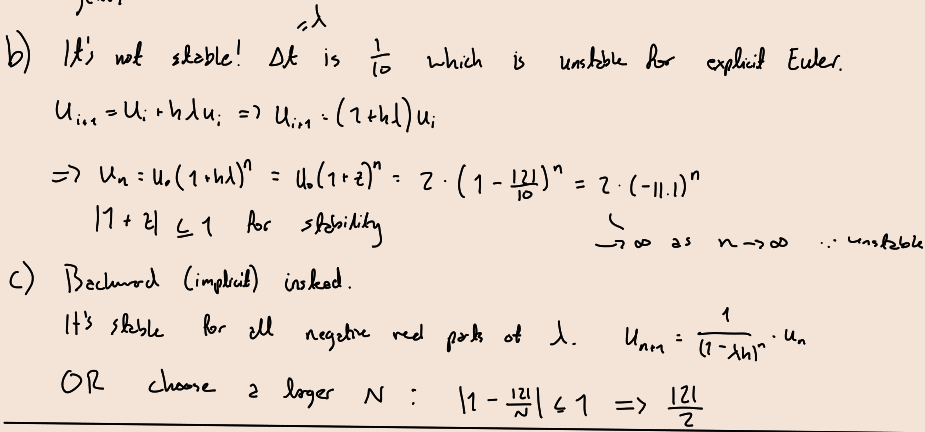 =λ
b) It's not stable! Δt is 1/10 which is unstable for explicit Euler.
u_{i+1} = u_i + hλu_i => u_{i+1} = (1+hλ)u_i
=> u_n = u_0(1+hλ)^n = u_0(1+z)^n = 2·(1 - 121/10)^n = 2·(-11.1)^n
|1+z| ≤ 1 for stability
→ ∞ as n → ∞ ∴ unstable
c) Backward (implicit) instead.
It's stable for all negative real parts of λ. u_{n+1} = 1/(1-λh)^n · u_n
OR choose a larger N : |1 - 121/N| ≤ 1 => 121/2